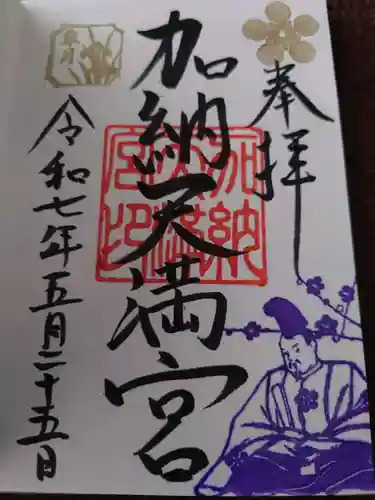 奉拝
加納天満宮
加納天満宮印
令和七年五月二十五日